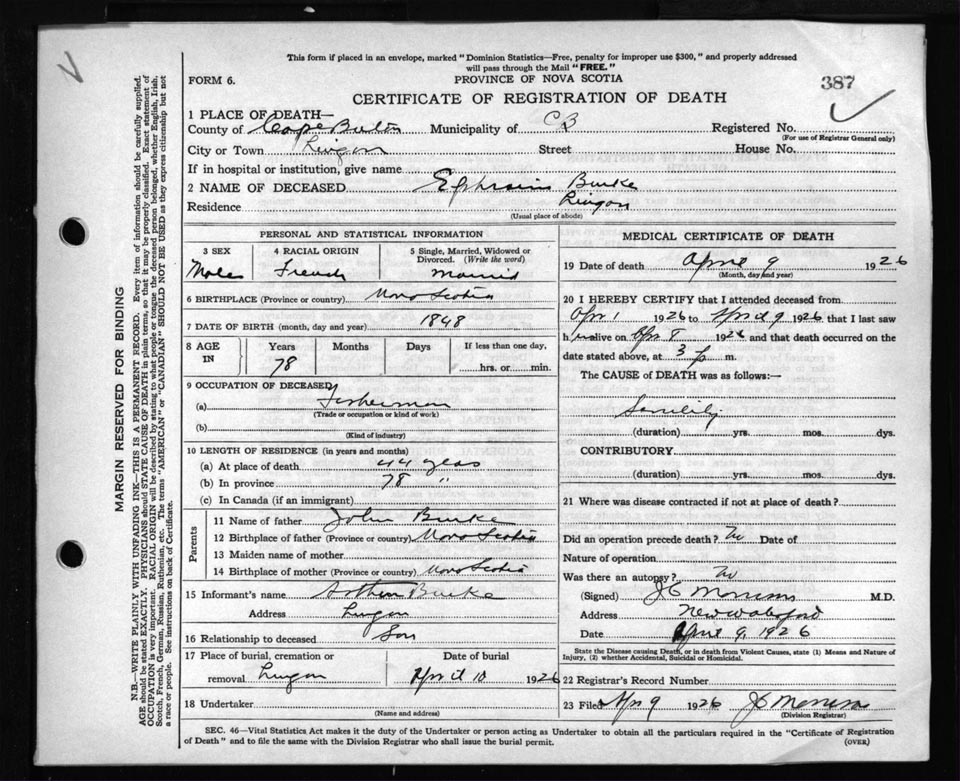 This form if placed in an envelope, marked "Dominion Statistics—Free, penalty for improper use $300," and properly addressed
will pass through the Mail "FREE."
FORM 6.
PROVINCE OF NOVA SCOTIA
387
CERTIFICATE OF REGISTRATION OF DEATH
1 PLACE OF DEATH—
County of Cape Breton Municipality of CB Registered No.
(For use of Registrar General only)
City or Town Lingan Street House No.
If in hospital or institution, give name
2 NAME OF DECEASED Ephraim Burke
Residence Lingan
(Usual place of abode)
PERSONAL AND STATISTICAL INFORMATION
3 SEX 4 RACIAL ORIGIN 5 Single, Married, Widowed or Divorced. (Write the word)
Male French Married
6 BIRTHPLACE (Province or country) Nova Scotia
7 DATE OF BIRTH (month, day and year) 1848
8 AGE IN Years Months Days If less than one day,
78 hrs. or min.
9 OCCUPATION OF DECEASED
(a) Fisherman
(Trade or occupation or kind of work)
(b)
(Kind of industry)
10 LENGTH OF RESIDENCE (in years and months)
(a) At place of death 44 years
(b) In province 78 "
(c) In Canada (if an immigrant)
Parents
11 Name of father John Burke
12 Birthplace of father (Province or country) Nova Scotia
13 Maiden name of mother
14 Birthplace of mother (Province or country) Nova Scotia
15 Informant's name Arthur Burke
Address Lingan
16 Relationship to deceased Son
17 Place of burial, cremation or Date of burial
removal Lingan April 10 1926
18 Undertaker
(Name and address)
MEDICAL CERTIFICATE OF DEATH
19 Date of death April 9 1926
(Month, day and year)
20 I HEREBY CERTIFY that I attended deceased from
Apr 1 1926 to April 9 1926 that I last saw
him alive on Apr 8 1926 and that death occurred on the
date stated above, at 3 p m.
The CAUSE of DEATH was as follows:—
Senility
(duration) yrs. mos. dys.
CONTRIBUTORY
(duration) yrs. mos. dys.
21 Where was disease contracted if not at place of death?
Did an operation precede death? No Date of
Nature of operation
Was there an autopsy? No
(Signed) M.D.
Address New Waterford
Date April 9, 1926
State the Disease causing Death, or in death from Violent Causes, state (1) Means and Nature of
Injury, (2) whether Accidental, Suicidal or Homicidal.
22 Registrar's Record Number
23 Filed Apr 9 1926
(Division Registrar)
SEC. 46—Vital Statistics Act makes it the duty of the Undertaker or person acting as Undertaker to obtain all the particulars required in the "Certificate of Registration
of Death" and to file the same with the Division Registrar who shall issue the burial permit.
(OVER)
MARGIN RESERVED FOR BINDING
N.B.—WRITE PLAINLY WITH UNFADING INK—THIS IS A PERMANENT RECORD. Every item of information should be carefully supplied.
AGE should be stated EXACTLY. PHYSICIANS should STATE CAUSE OF DEATH in plain terms, so that it may be properly classified. Exact statement of
OCCUPATION is very important. RACIAL ORIGIN will be described by stating to what people or tongue the deceased person belonged, whether English, Irish,
Scotch, French, German, Russian, Ruthenian, etc. The terms "AMERICAN" or "CANADIAN" SHOULD NOT BE USED as they express citizenship but not
a race or people. See instructions on back of Certificate.